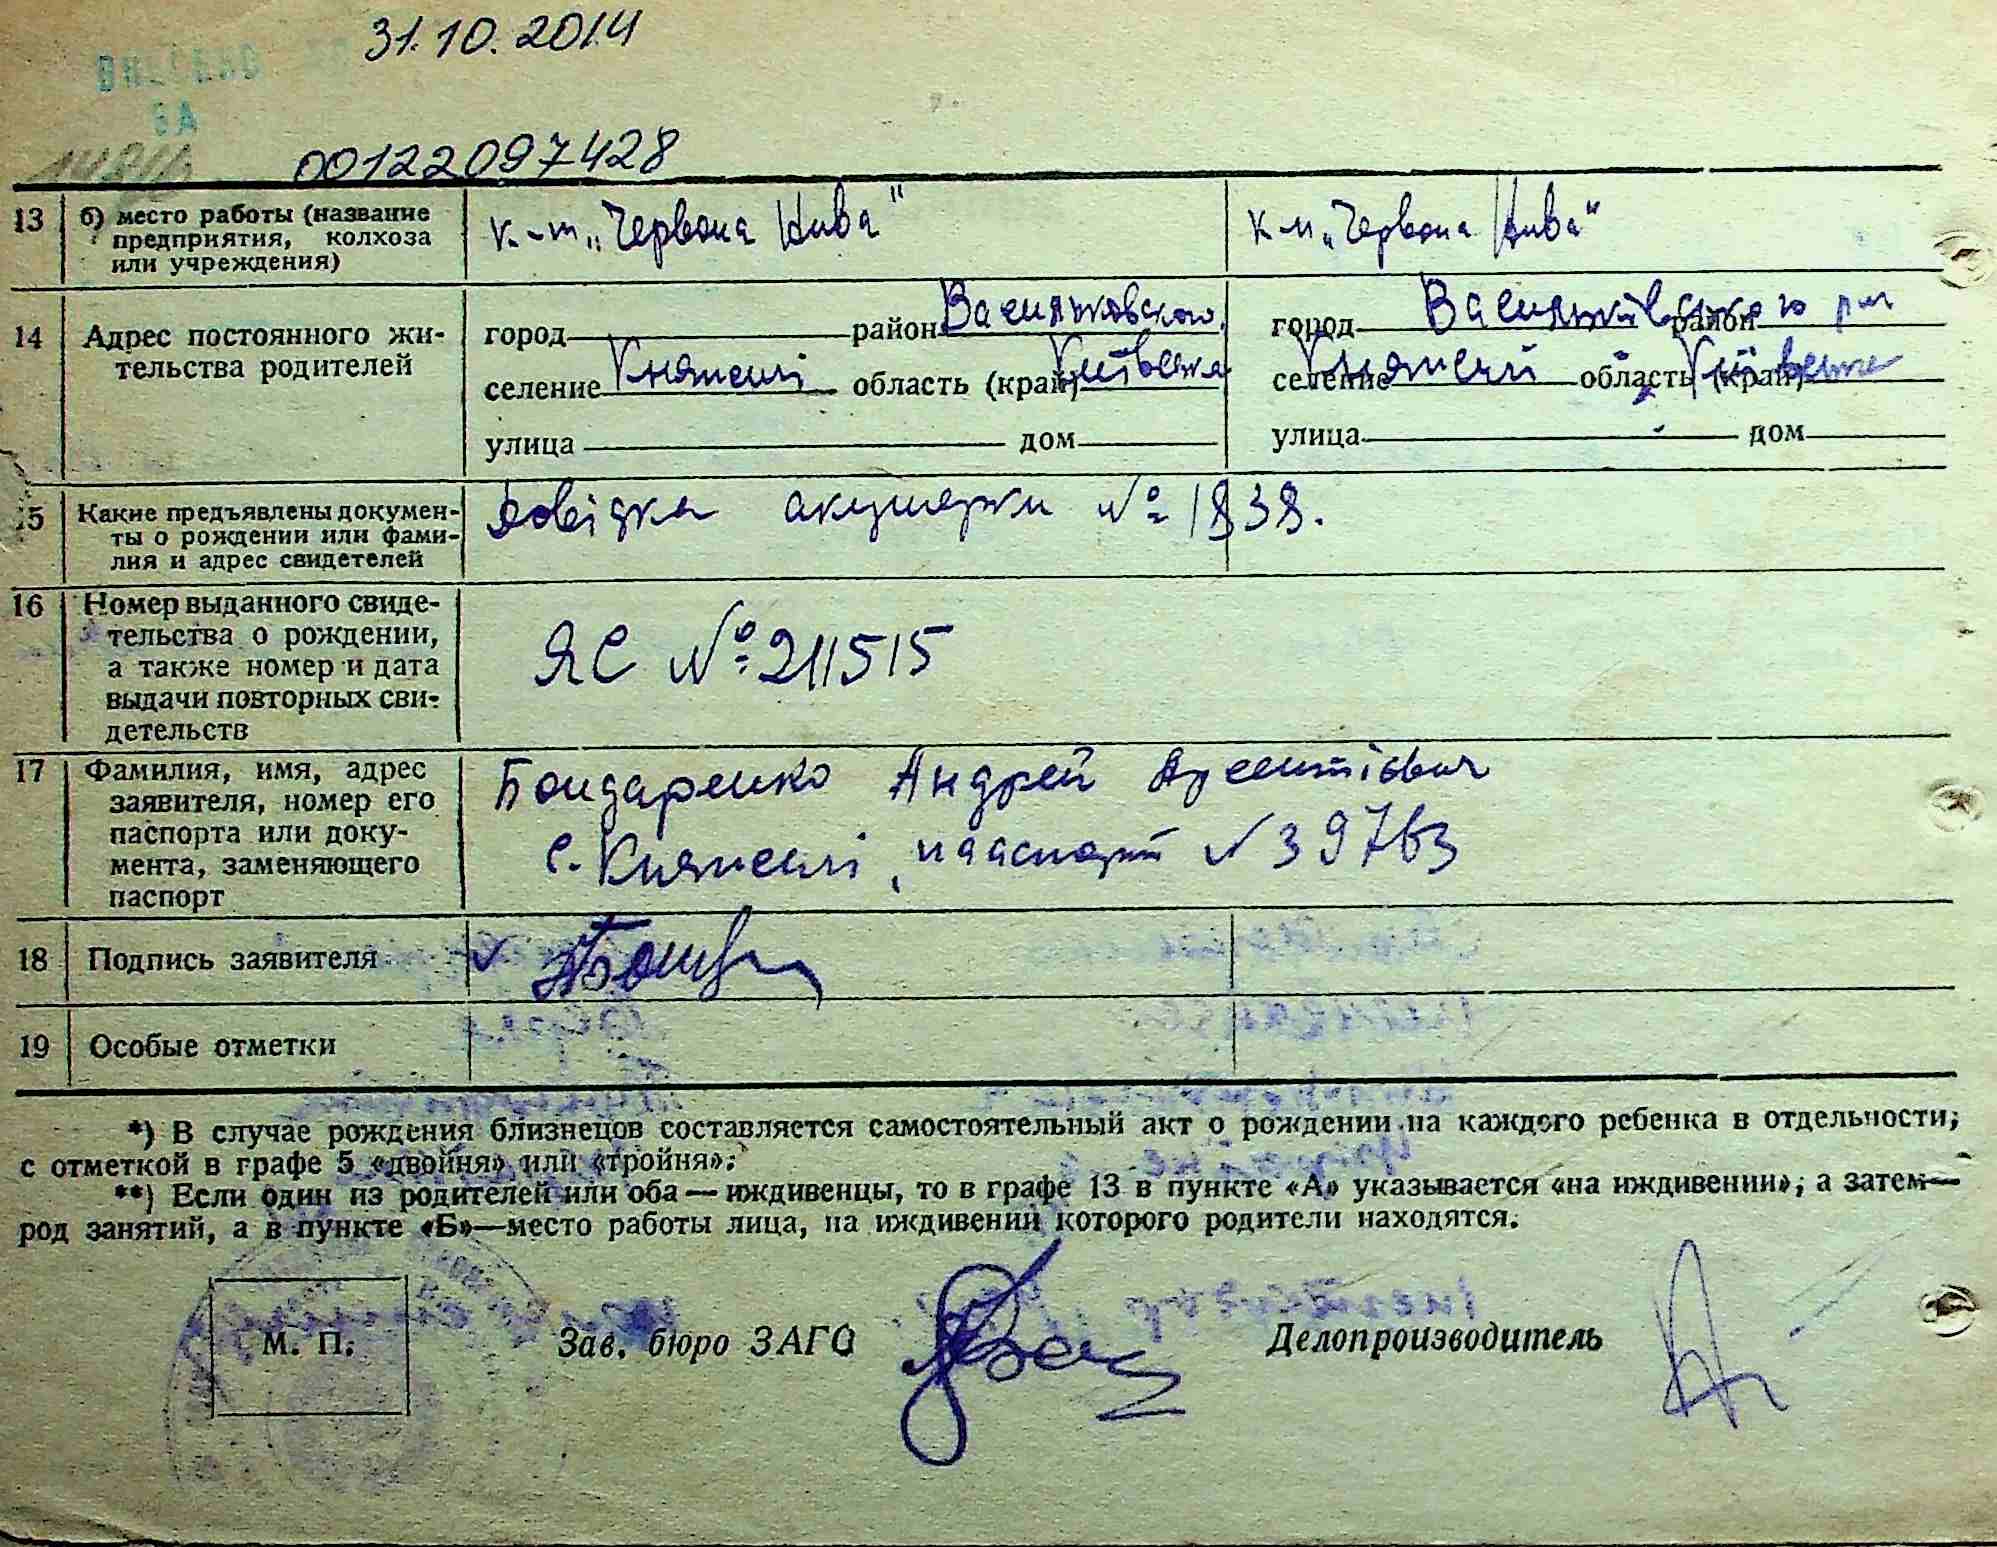 31.10.2014
00122097428
13 б) место работы (название предприятия, колхоза или учреждения) к-т „Червона Нива" к-п „Червона Нива"
14 Адрес постоянного жительства родителей
город район Васильковского город район Васильківського р-н
селение Княжичі область (край) Київська селение Княжичі область (край) Київська
улица дом улица дом
15 Какие предъявлены документы о рождении или фамилия и адрес свидетелей Довідка акушерки № 1838.
16 Номер выданного свидетельства о рождении, а также номер и дата выдачи повторных свидетельств ЯС № 211515
17 Фамилия, имя, адрес заявителя, номер его паспорта или документа, заменяющего паспорт Бондаренко Андрей
с. Княжичі, паспорт № 39763
18 Подпись заявителя
19 Особые отметки
*) В случае рождения близнецов составляется самостоятельный акт о рождении на каждого ребенка в отдельности,
с отметкой в графе 5 «двойня» или «тройня».
**) Если один из родителей или оба — иждивенцы, то в графе 13 в пункте «А» указывается «на иждивении», а затем —
род занятий, а в пункте «Б» — место работы лица, на иждивении которого родители находятся.
М. П. Зав. бюро ЗАГС Делопроизводитель